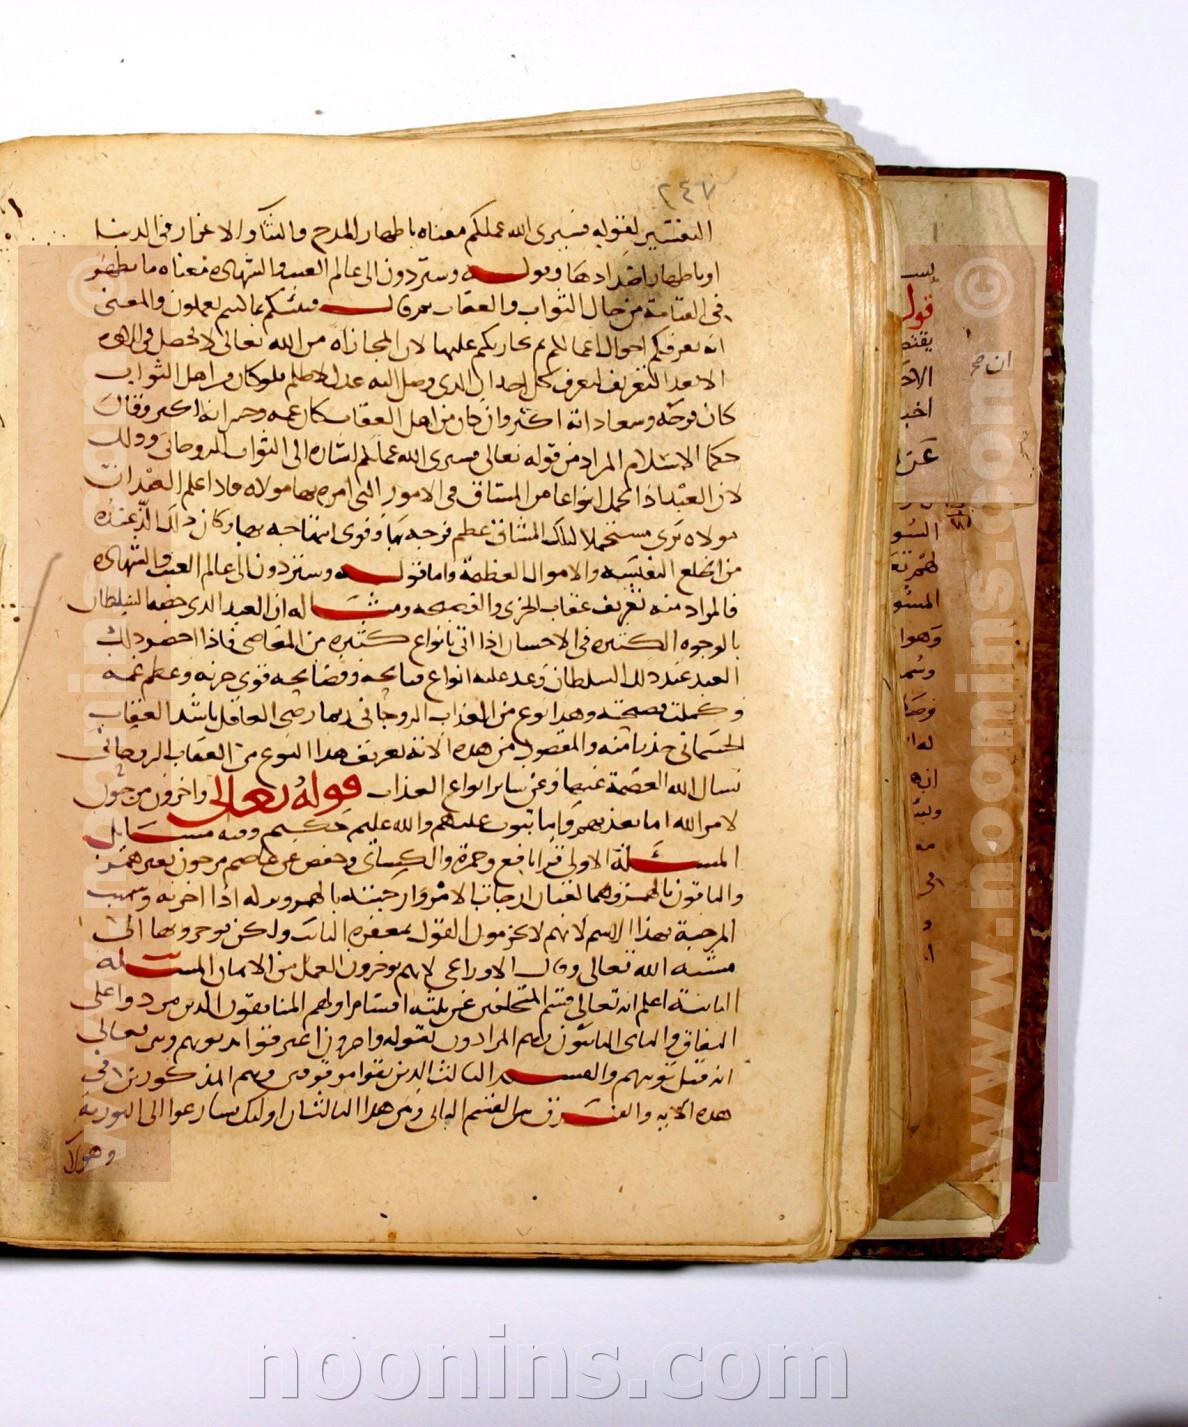 ٢٤٧
التفسير لقوله فسيرى الله عملكم معناه باظهار المدح والثناء والاعزاز فى الدنيا
او باظهار اضدادها وقوله وستردون الى عالم الغيب والشهادة معناه ما يظهر
فى القيامة من حال الثواب والعقاب ثم قال فينبئكم بما كنتم تعملون والمعنى
انه يعرفكم احوال اعمالكم ثم يجازيكم عليها لان المجازاة من الله تعالى لا تحصل فى الاخرة
الا بعد التعريف ليعرف كل احد ان الذى وصل اليه عدل لا ظلم فلو كان من اهل الثواب
كان فرحه وسعاداته اكثر وان كان من اهل العقاب كان غمه وحسرانه اكبر وقال
حكما الاسلام المراد من قوله تعالى فسيرى الله عملكم اشارة الى الثواب الروحانى وذلك
لان العبد اذا تحمل انواعا من المشاق فى الامور التى امره بها مولاه فاذا علم العبد ان
مولاه يرى متحملا لتلك المشاق عظم فرحه بها وقوى ابتهاجه بها وكان ذلك الذ عنده
من الخلع النفيسه والاموال العظيمة واما قوله وستردون الى عالم الغيب والشهادة
فالمراد منه تعريف عقاب الخزى والفضيحه ومثاله ان العبد الذى خصه السلطان
بالوجوه الكثيره فى الاحسان اذا اتى بانواع كثيره من المعاصى فاذا احضر ذلك
العبد عند ذلك السلطان وعد عليه انواع قبايحه وفضايحه قوى حزنه وعظم غمه
وكملت فضيحته وهذا نوع من العذاب الروحانى ربما رضى العاقل باشد العقاب
الجسمانى حذرا منه والمقصود من هذه الاية تعريف هذا النوع من العقاب الروحانى
نسال الله العصمة عنها وعن ساير انواع العذاب قوله تعالى واخرون مرجون
لامر الله اما يعذبهم واما يتوب عليهم والله عليم حكيم وفيه مسايل
المسئلة الاولى قرا نافع وحمزة والكسائى وحفص عن عاصم مرجون بغير همز
والباقون بالهمز وهما لغتان ارجات الامر وارجيته بالهمز وتركه اذا اخرته وسميت
المرجية بهذا الاسم لانهم لا يجزمون القول بمغفرة التائب ولكن يؤخرونها الى
مشيه الله تعالى وقال الاوزاعى لانهم يوخرون العمل من الايمان المسئله
الثانية اعلم انه تعالى قسم المتخلفين عن ثلثه اقسام اولهم المنافقون الذين مردوا على
النفاق والثانى التائبون وهم المرادون بقوله واخرون اعترفوا بذنوبهم وبين تعالى
انه قبل توبتهم والقسم الثالث الذين بقوا موقوفين وهم المذكورين فى
هذه الايه والفرق بين القسم الثانى وبين هذا الثالث ان اولئك سارعوا الى التوبة
وهولا
ان صح
قول